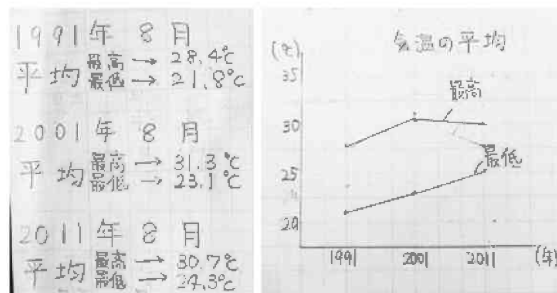 1991年 8月
平均 最高 → 28.4℃
最低 → 21.8℃
2001年 8月
平均 最高 → 31.3℃
最低 → 23.1℃
2011年 8月
平均 最高 → 30.7℃
最低 → 24.3℃
気温の平均
(℃)
35
最高
30
最低
25
20
1991 2001 2011 (年)